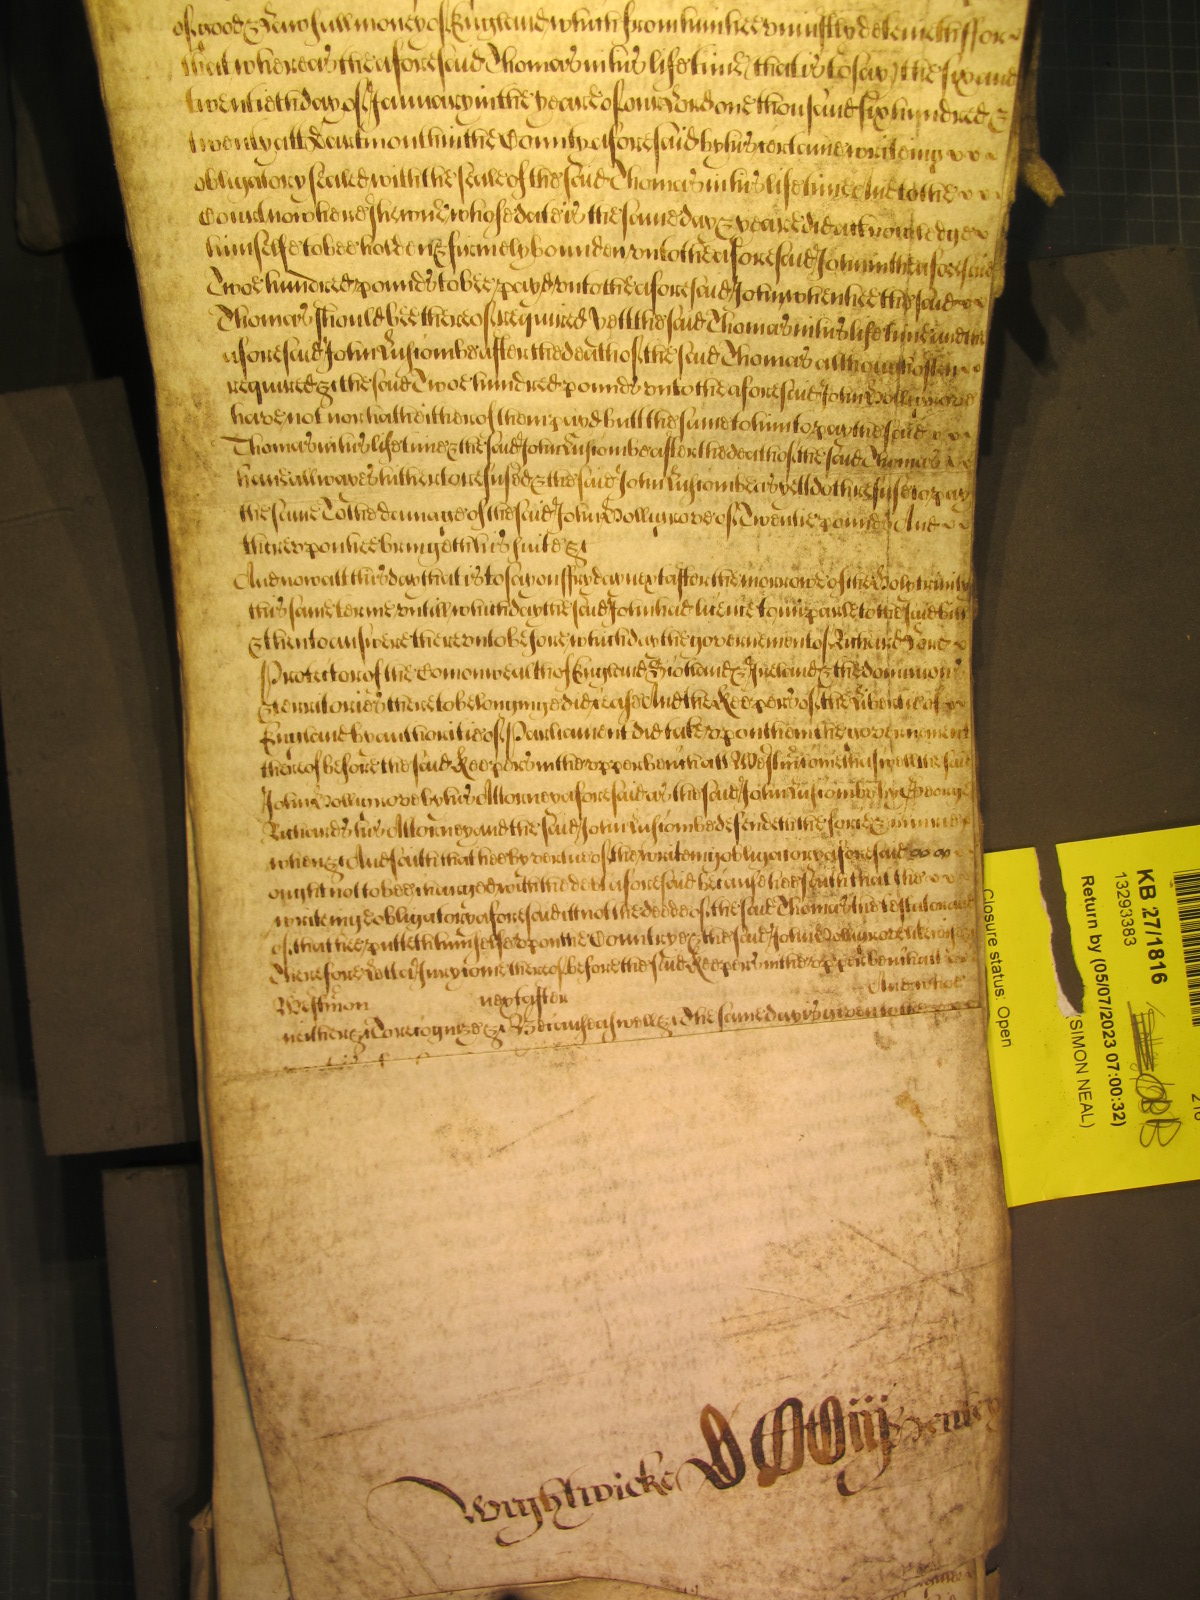 of good & lawfull money of England which from him hee uniustly deteineth ffor
that whereas the aforesaid Thomas in his life time (that is to say) the six and
twentieth day of January in the yeare of our Lord one thousand six hundred &
twenty att Dartmouth in the County aforesaid by his certaine writeing
obligatory sealed with the seale of the said Thomas in his life time And to the
Court now here shewne whose date is the same day & yeare did acknowledge
himselfe to bee holden & firmely bounden unto the aforesaid John in the aforesaid
Twoe hundred pounds to bee payd unto the aforesaid John when hee the said
Thomas should bee thereof required Yett the said Thomas in his life time and the
aforesaid John Lusiombe after the death of the said Thomas although often
required &c the said Twoe hundred pounds unto the aforesaid John Holligrove
have not nor hath either of them payd butt the same to him to pay the said
Thomas in his life time & the said John Lusiombe after the death of the said Thomas
have allwayes hitherto refused & the said John Lusiombe as yett doth refuse to pay
the same To the damage of the said John Holligrove of Twentie pounds And
thereupon hee bringeth his suite &c
And now att this day that is to say on ffryday next after the morrowe of the Holy Trinity
this same terme untill which day the said John had licence to imparle to the said bill
& then to answere thereunto before which day the governement of Richard Lord
Protector of the Comonwealth of England Scotland & Ireland & the dominions
& territories thereto belonginge did cease And the Keepers of the Libertie of
England by authoritie of Parliament did take upon them the governement
thereof before the said Keepers in the upper bench att Westm come th aswell the said
John Holligrove by his Attorney aforesaid as the said John Lusiombe by George
Richards his Attorney and the said John Lusiombe defendeth the force & iniurie
when &c And saith that hee by vertue of the writeing obligatory aforesaid
ought not to bee charged with the debt aforesaid because hee saith that the
writeinge obligatory aforesaid itt not the deede of the said Thomas the testator and
of that hee putteth himselfe upon the Country & the said John Holligrove likewise &c
Therefore lett a Jury come thereof before the said Keepers in the upper bench att
Westmon next after And who
neither &c To recognize &c Because aswell &c The same day is given to the
Wrightwicke Henley
KB 27/1816
13293383
Return by (05/07/2023 07:00:32)
(SIMON NEAL)
Closure status: Open